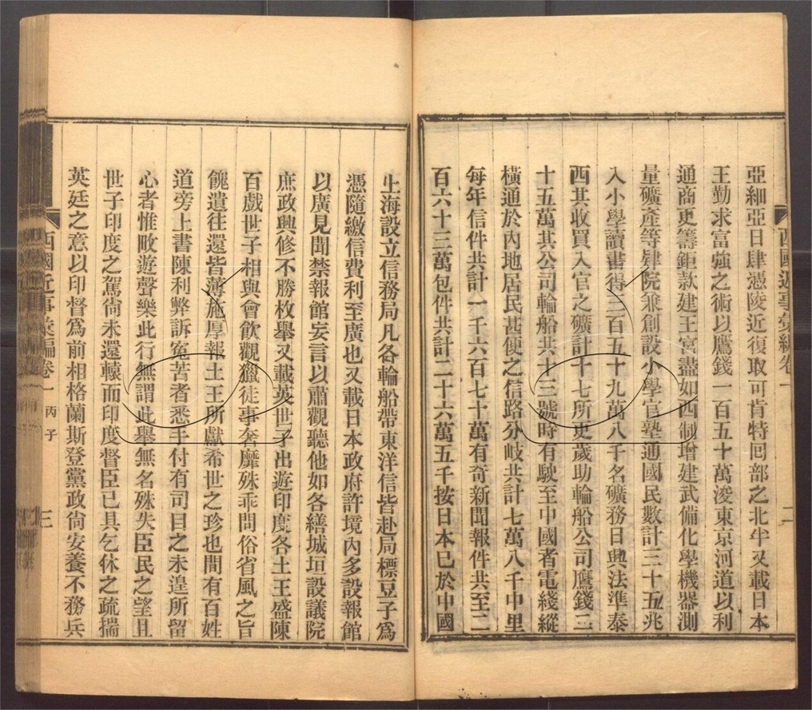 亞細亞日肆憑陵近復取可肯特回部之北半又載日本
王勤求富強之術以鷹錢一百五十萬浚東京河道以利
通商更籌鉅款建王宮盡如西制增建武備化學機器測
量礦產等肄院兼創設小學官塾通國民數計三十五兆
入小學讀書得二百五十九萬八千名礦務日興法準泰
西其收買入官之礦計十七所更歲助輪船公司鷹錢三
十五萬其公司輪船共十三號時有駛至中國者電綫縱
橫通於內地居民甚便之信路分歧共計七萬八千中里
每年信件共計一千六百七十萬有奇新聞報件共至二
百六十三萬包件共計二十六萬五千按日本已於中國
西國近事彙編卷一
二
上海設立信務局凡各輪船帶東洋信皆赴局標豆子為
憑隨繳信費利至廣也又載日本政府許境內多設報館
以廣見聞禁報館妄言以肅觀聽他如各繕城垣設議院
庶政興修不勝枚舉又載英世子出遊印度各土王盛陳
百戲世子相與會飲觀獵徒事奢靡殊乖問俗省風之旨
餽遺往還皆薄施厚報土王所獻希世之珍也間有百姓
道旁上書陳利弊訴冤苦者悉手付有司目之未遑所留
心者惟畋遊聲樂此行無謂此舉無名殊失臣民之望且
世子印度之駕尚未還轅而印度督臣已具乞休之疏揣
英廷之意以印督為前相格蘭斯登黨政尚安養不務兵
西國近事彙編卷一 丙子
三